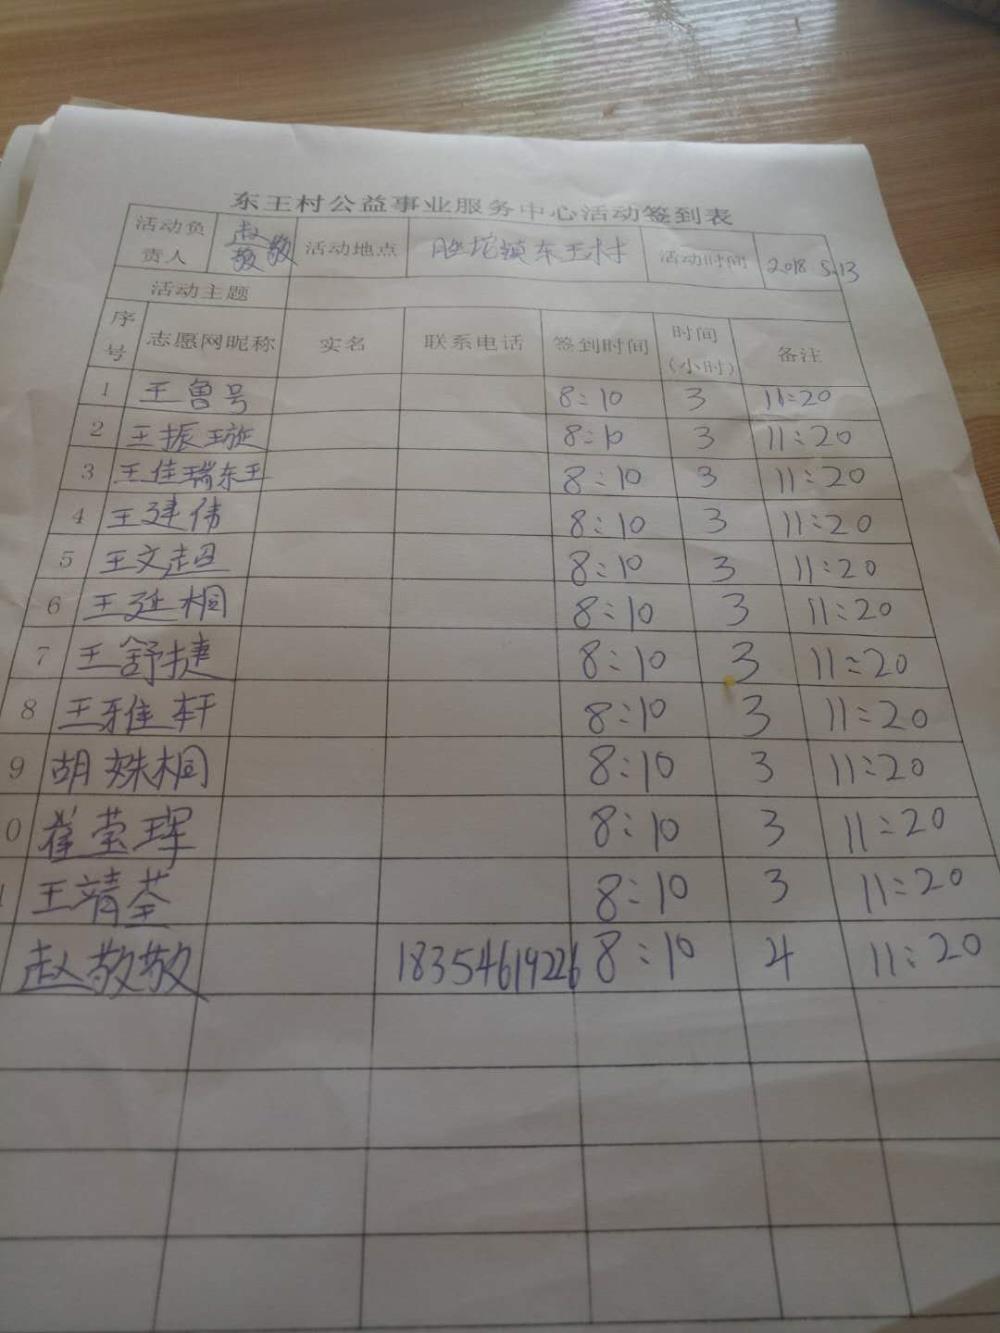 东王村公益事业服务中心活动签到表
活动负责人 赵敬敬 活动地点 胜坨镇东王村 活动时间 2018 5.13
活动主题
序号 志愿网昵称 实名 联系电话 签到时间 时间(小时) 备注
1 王鲁号 8:10 3 11:20
2 王振璇 8:10 3 11:20
3 王佳瑞东王 8:10 3 11:20
4 王建伟 8:10 3 11:20
5 王文超 8:10 3 11:20
6 王延桐 8:10 3 11:20
7 王舒捷 8:10 3 11:20
8 王雅轩 8:10 3 11:20
9 胡姝桐 8:10 3 11:20
0 崔莹珲 8:10 3 11:20
王靖荃 8:10 3 11:20
赵敬敬 18354619226 8:10 4 11:20